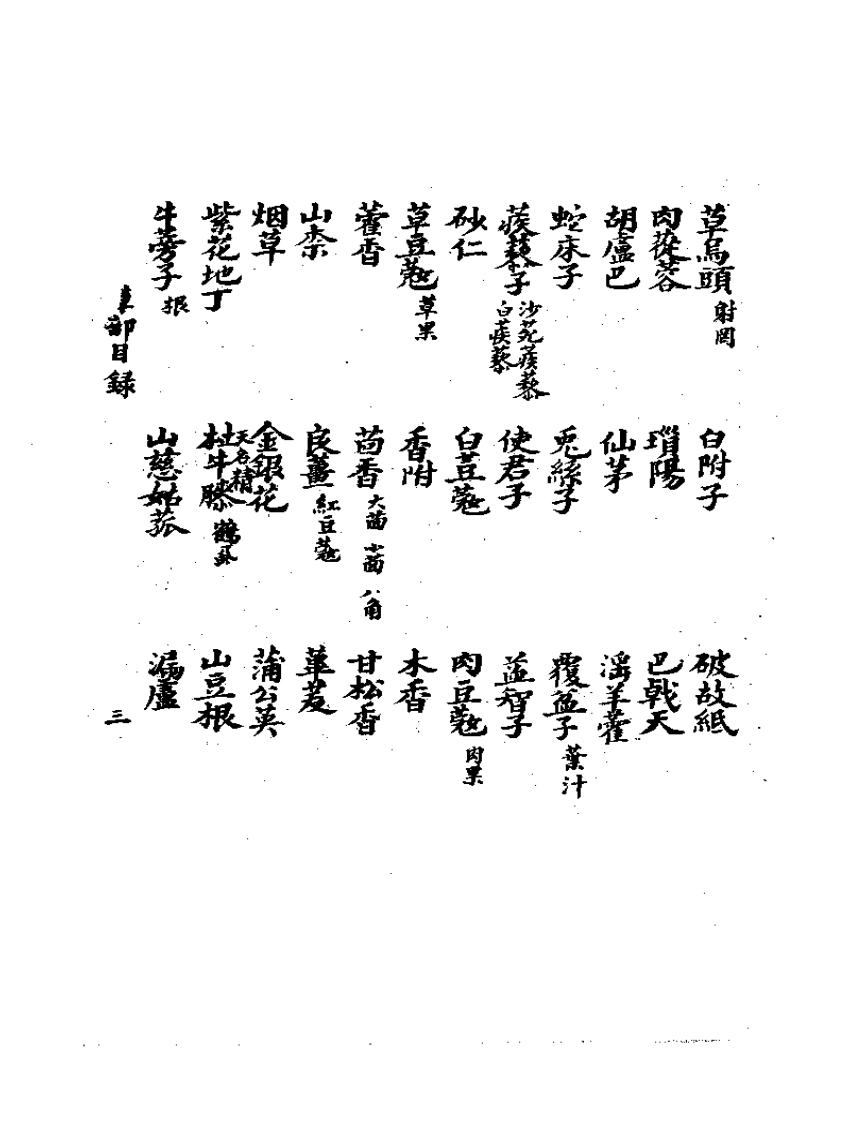 草烏頭 射罔 白附子 破故紙
肉蓯蓉 瑣陽 巴戟天
胡盧巴 仙茅 淫羊藿
蛇床子 兎絲子 覆盆子 葉汁
蒺藜子 沙苑蒺藜 白蒺藜 使君子 益智子
砂仁 白荳蔻 肉豆蔻 肉果
草豆蔻 草果 香附 木香
藿香 茴香 大茴 小茴 八角 甘松香
山柰 良薑 紅豆蔻 蓽茇
烟草 金銀花 蒲公英
紫花地丁 杜牛膝 天名精 鶴虱 山豆根
牛蒡子 根 山慈姑菰 漏盧
部目録 三